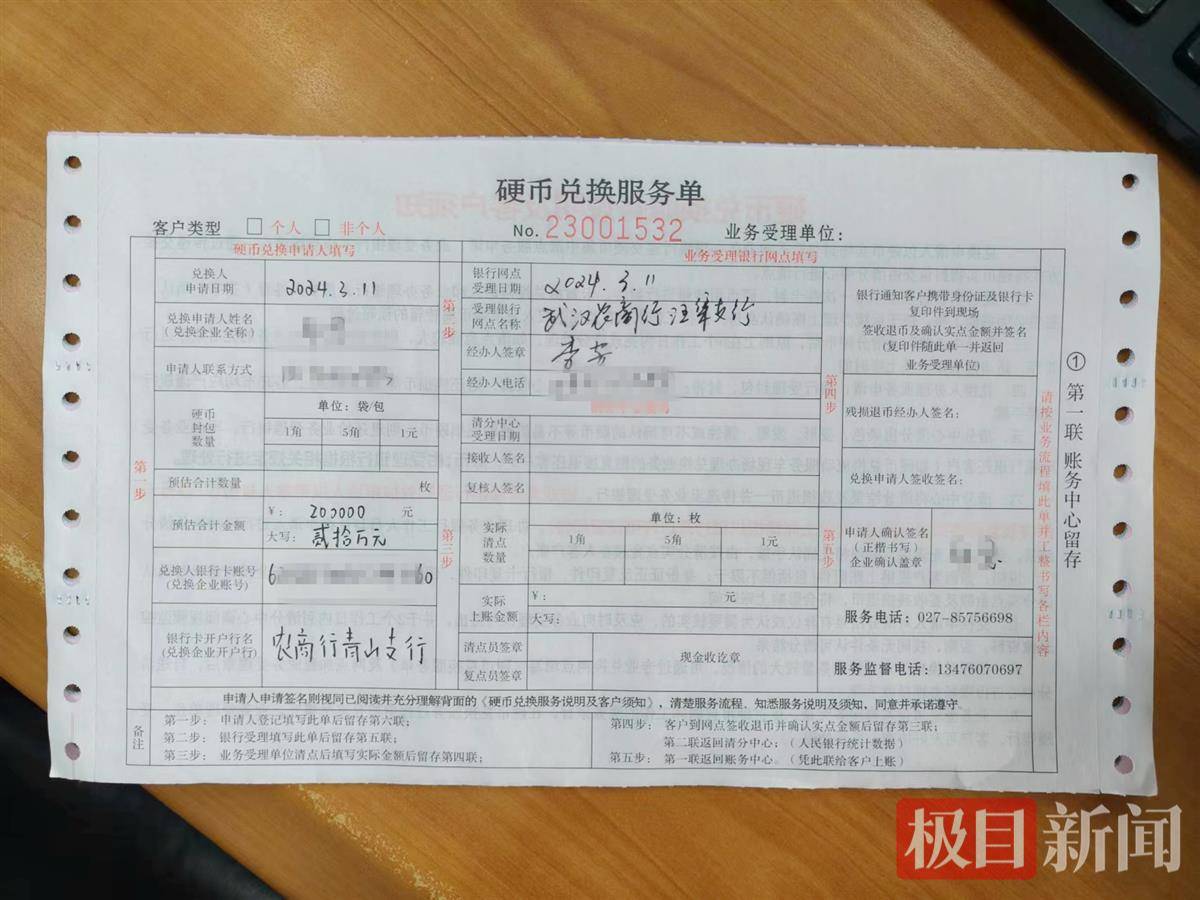 硬币兑换服务单
客户类型 □ 个人 □ 非个人
No. 23001532
业务受理单位：
硬币兑换申请人填写
第一步
兑换人申请日期
2024.3.11
兑换申请人姓名
（兑换企业全称）
申请人联系方式
硬币封包数量
单位：袋/包
1角 5角 1元
预估合计数量 枚
预估合计金额
¥： 200000 元
大写：贰拾万元
兑换人银行卡账号
（兑换企业账号）
6 60
银行卡开户行名
（兑换企业开户行）
农商行青山支行
业务受理银行网点填写
第二步
银行网点受理日期
2024.3.11
受理银行网点名称
武汉农商行汪家支行
经办人签章
李芳
经办人电话
第三步
清分中心受理日期
接收人签名
复核人签名
实际清点数量
单位：枚
1角 5角 1元
实际上账金额
¥： 元
大写：
清点员签章
复点员签章
现金收讫章
第四步
银行通知客户携带身份证及银行卡
复印件到现场
签收退币及确认实点金额并签名
（复印件随此单一并返回
业务受理单位）
残损退币经办人签名：
兑换申请人签收签名：
第五步
申请人确认签名
（正楷书写）
企业确认盖章
服务电话：027-85756698
服务监督电话：13476070697
申请人申请签名则视同已阅读并充分理解背面的《硬币兑换服务说明及客户须知》，清楚服务流程、知悉服务说明及须知，同意并承诺遵守。
备注
第一步： 申请人登记填写此单后留存第六联；
第二步： 银行受理填写此单后留存第五联；
第三步： 业务受理单位清点后填写实际金额后留存第四联；
第四步： 客户到网点签收退币并确认实点金额后留存第三联；
第二联返回清分中心；（人民银行统计数据）
第五步： 第一联返回账务中心。（凭此联给客户上账）
请按业务流程填此单并工整书写各栏内容
① 第一联 账务中心留存
极目新闻